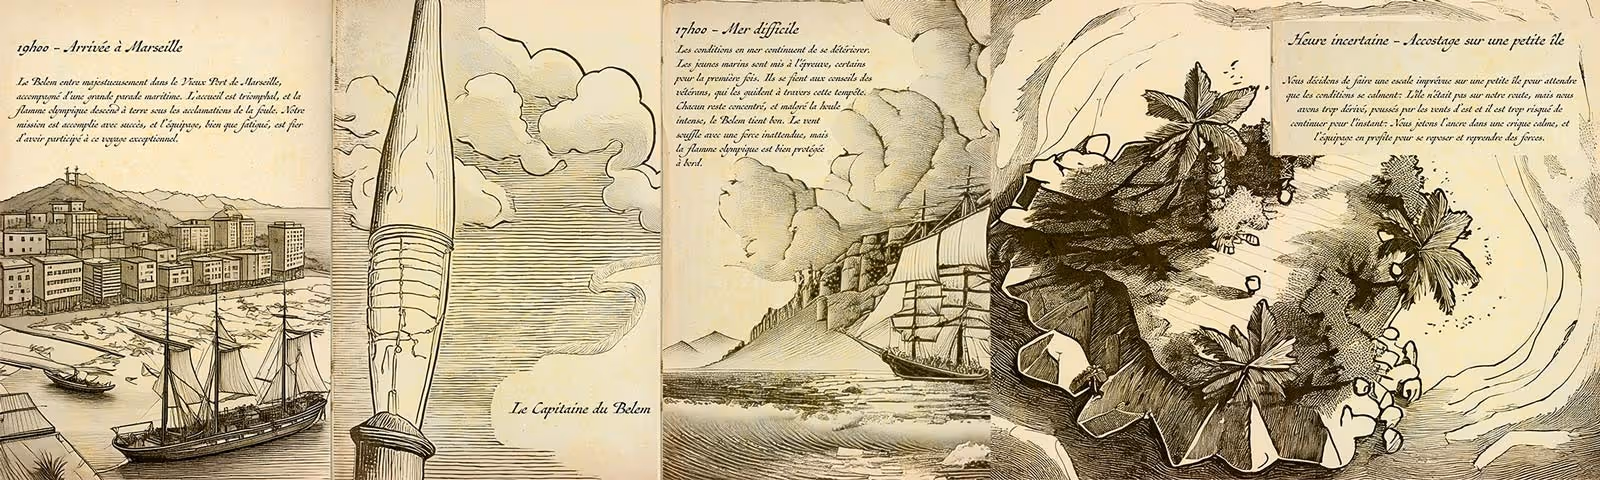 19h00 - Arrivée à Marseille
Le Belem entre majestueusement dans le Vieux Port de Marseille,
accompagné d'une grande parade maritime. L'accueil est triomphal, et la
flamme olympique descend à terre sous les acclamations de la foule. Nôtre
mission est accomplie avec succès, et l'équipage, bien que fatigué, est fier
d'avoir participé à ce voyage exceptionnel.
Le Capitaine du Belem
17h00 - Mer difficile
Les conditions en mer continuent de se détériorer.
Les jeunes marins sont mis à l'épreuve, certains
pour la première fois. Ils se fient aux conseils des
vétérans, qui les guident à travers cette tempête.
Chacun reste concentré, et malgré la houle
intense, le Belem tient bon. Le vent
souffle avec une force inattendue, mais
la flamme olympique est bien protégée
à bord.
Heure incertaine - Accostage sur une petite île
Nous décidons de faire une escale imprévue sur une petite île pour attendre
que les conditions se calment: L'île n'était pas sur notre route, mais nous
avons trop dérivé, poussés par les vents d'est et il est trop risqué de
continuer pour l'instant: Nous jetons l'ancre dans une crique calme, et
l'équipage en profite pour se reposer et reprendre des forces.